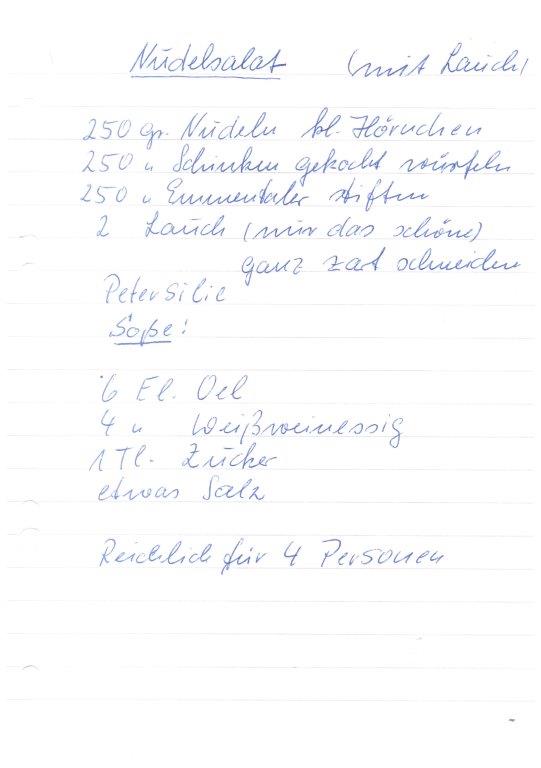 Nudelsalat (mit Lauch)
250 gr. Nudeln kl. Hörnchen
250 " Schinken gekocht würfeln
250 " Emmentaler stiften
2 Lauch (nur das schöne)
ganz zart schneiden
Petersilie
Soße:
6 El. Oel
4 " Weißweinessig
1 Tl. Zucker
etwas Salz
Reichlich für 4 Personen